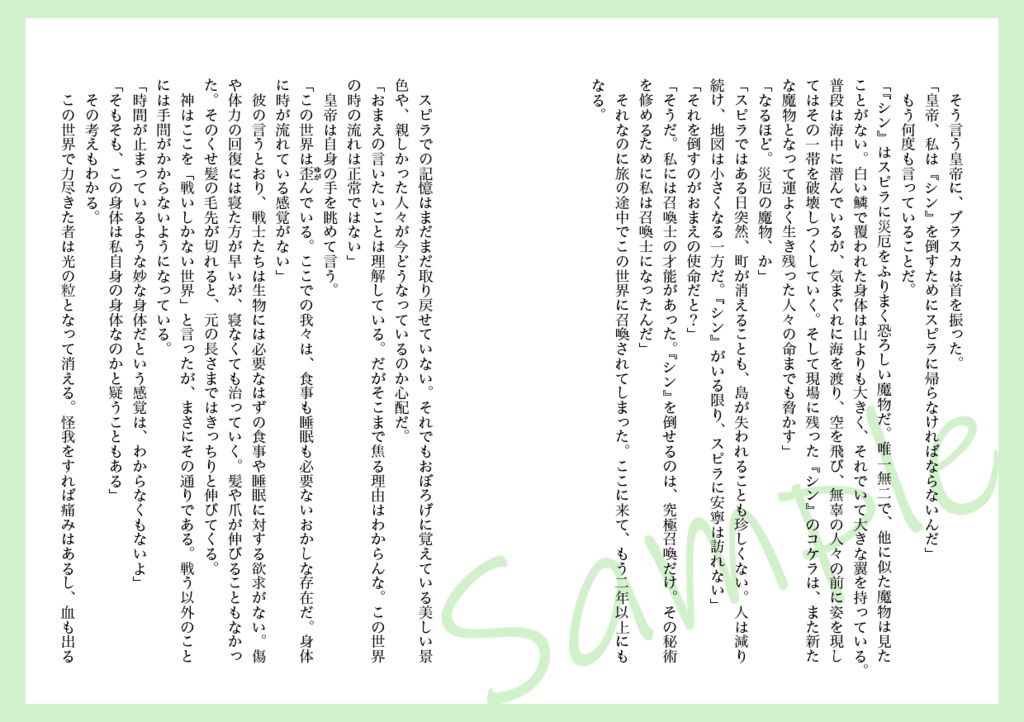 そう言う皇帝に、ブラスカは首を振った。
「皇帝、私は『シン』を倒すためにスピラに帰らなければならないんだ」
もう何度も言っていることだ。
「『シン』はスピラに災厄をふりまく恐ろしい魔物だ。唯一無二で、他に似た魔物は見た
ことがない。白い鱗で覆われた身体は山よりも大きく、それでいて大きな翼を持っている。
普段は海中に潜んでいるが、気まぐれに海を渡り、空を飛び、無辜の人々の前に姿を現し
てはその一帯を破壊しつくしていく。そして現場に残った『シン』のコケラは、また新た
な魔物となって運よく生き残った人々の命までも脅かす」
「なるほど。災厄の魔物、か」
「スピラではある日突然、町が消えることも、島が失われることも珍しくない。人は減り
続け、地図は小さくなる一方だ。『シン』がいる限り、スピラに安寧は訪れない」
「それを倒すのがおまえの使命だと？」
「そうだ。私には召喚士の才能があった。『シン』を倒せるのは、究極召喚だけ。その秘術
を修めるために私は召喚士になったんだ」
それなのに旅の途中でこの世界に召喚されてしまった。ここに来て、もう二年以上にも
なる。
スピラでの記憶はまだまだ取り戻せていない。それでもおぼろげに覚えている美しい景
色や、親しかった人々が今どうなっているのか心配だ。
「おまえの言いたいことは理解している。だがそこまで焦る理由はわからんな。この世界
の時の流れは正常ではない」
皇帝は自身の手を眺めて言う。
「この世界は歪んでいる。ここでの我々は、食事も睡眠も必要ないおかしな存在だ。身体
ゆが
に時が流れている感覚がない」
彼の言うとおり、戦士たちは生物には必要なはずの食事や睡眠に対する欲求がない。傷
や体力の回復には寝た方が早いが、寝なくても治っていく。髪や爪が伸びることもなかっ
た。そのくせ髪の毛先が切れると、元の長さまではきっちりと伸びてくる。
神はここを「戦いしかない世界」と言ったが、まさにその通りである。戦う以外のこと
には手間がかからないようになっている。
「時間が止まっているような妙な身体だという感覚は、わからなくもないよ」
「そもそも、この身体は私自身の身体なのかと疑うこともある」
その考えもわかる。
この世界で力尽きた者は光の粒となって消える。怪我をすれば痛みはあるし、血も出る
Sample